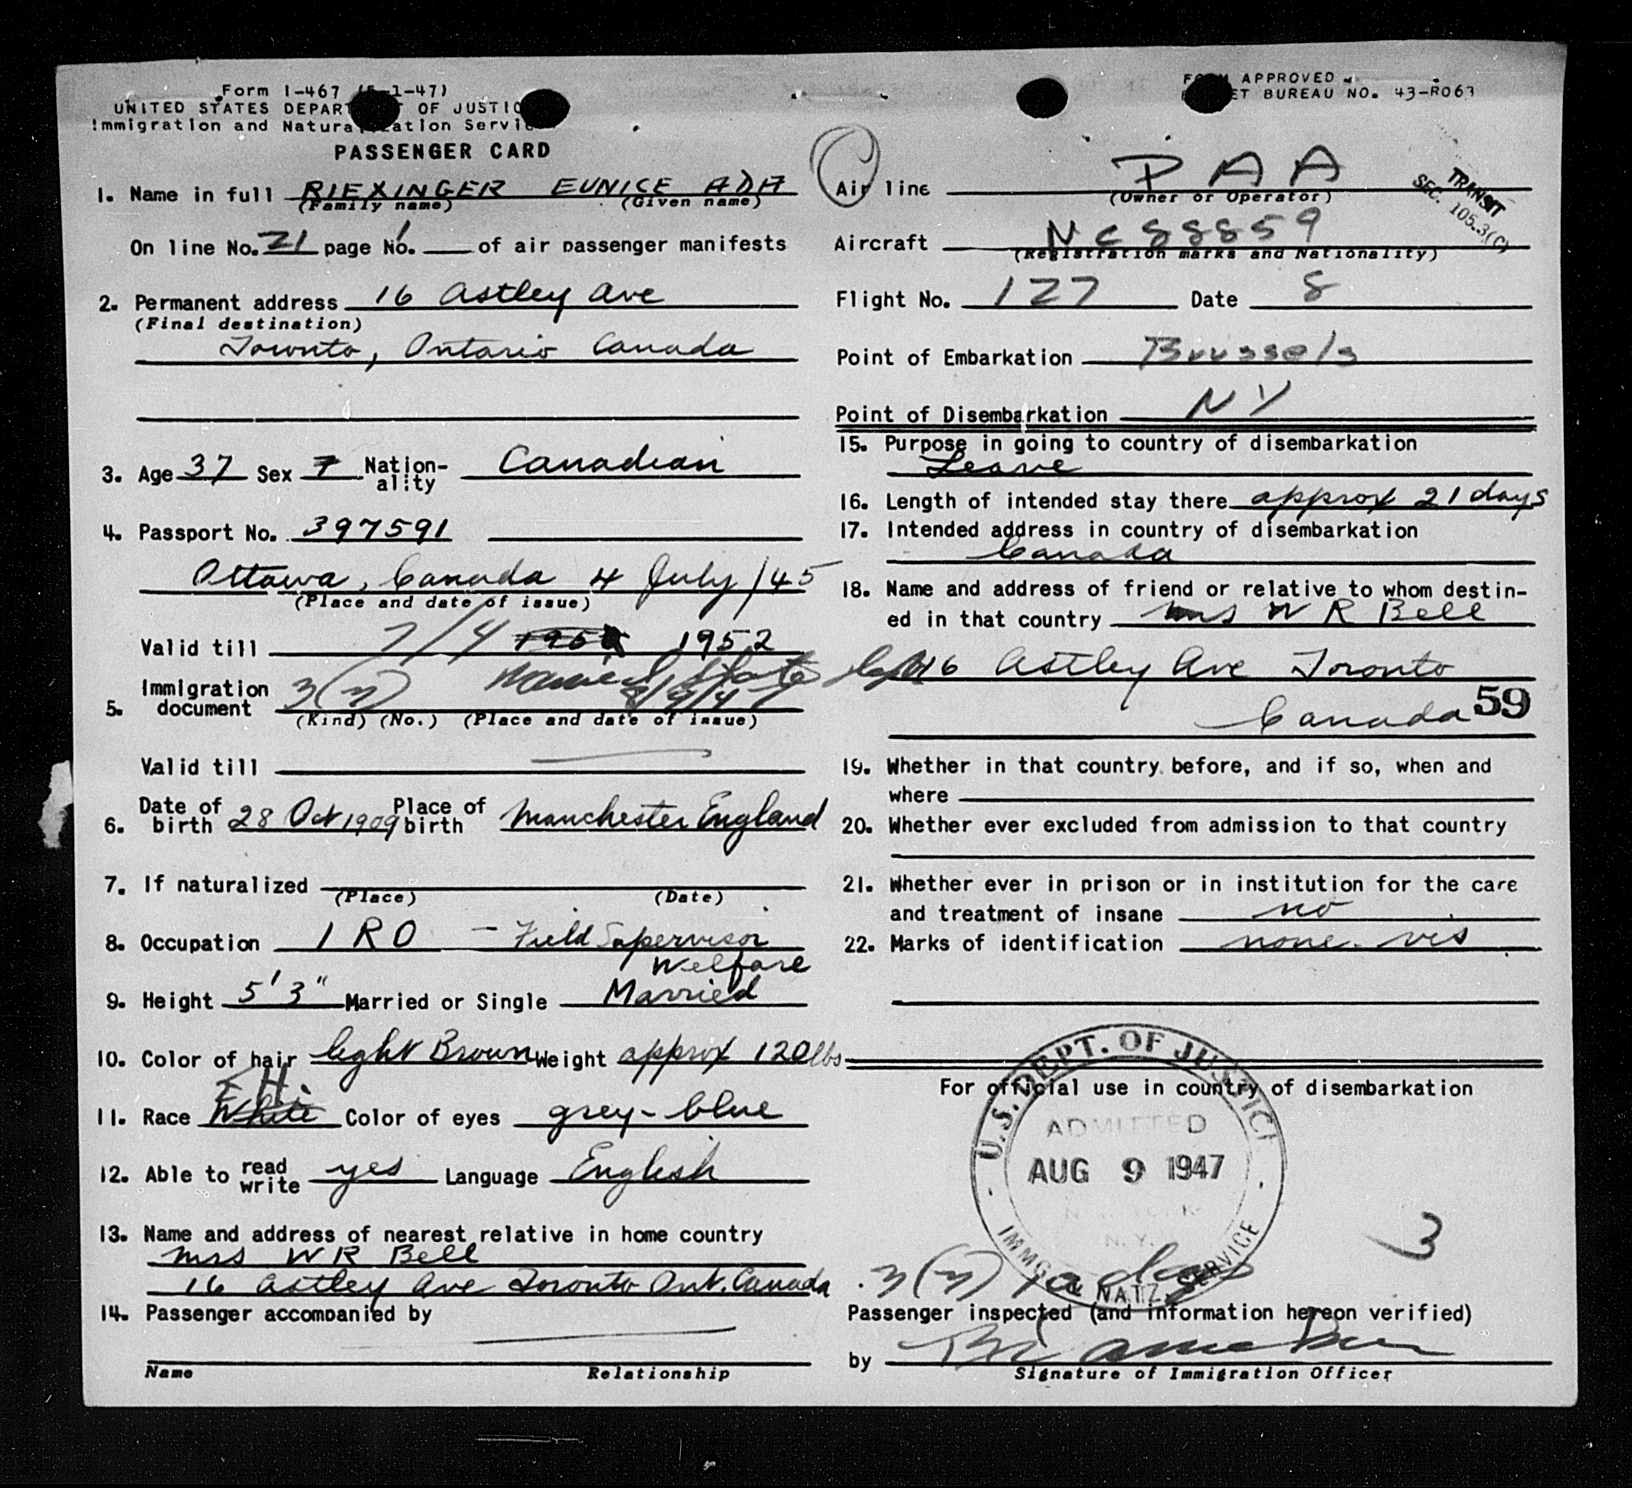 Form I-467 (5-1-47)
UNITED STATES DEPARTMENT OF JUSTICE
Immigration and Naturalization Service
PASSENGER CARD
FORM APPROVED
BUDGET BUREAU NO. 43-R063
TRANSIT
SEC. 105.3(C)
1. Name in full RIEXINGER EUNICE ADA
(Family name) (Given name)
On line No. 21 page No. 1 of air passenger manifests
2. Permanent address 16 Astley Ave
(Final destination)
Toronto, Ontario Canada
3. Age 37 Sex F Nation-
ality Canadian
4. Passport No. 397591
Ottawa, Canada 4 July/45
(Place and date of issue)
Valid till 7/4 1952
5. Immigration
document 3(7) State
(Kind) (No.) (Place and date of issue)
Valid till
6. Date of
birth 28 Oct 1909 Place of
birth Manchester England
7. If naturalized
(Place) (Date)
8. Occupation IRO - Field Supervisor
Welfare
9. Height 5'3" Married or Single Married
10. Color of hair light Brown Weight approx 120 lbs
11. Race White Color of eyes grey-blue
12. Able to read
write yes Language English
13. Name and address of nearest relative in home country
Mrs W R Bell
16 Astley Ave Toronto Ont. Canada
14. Passenger accompanied by
Name Relationship
Air line PAA
(Owner or Operator)
Aircraft NC88859
(Registration marks and Nationality)
Flight No. 127 Date 8
Point of Embarkation Brussels
Point of Disembarkation NY
15. Purpose in going to country of disembarkation
Leave
16. Length of intended stay there approx 21 days
17. Intended address in country of disembarkation
Canada
18. Name and address of friend or relative to whom destin-
ed in that country Mrs W R Bell
16 Astley Ave Toronto
Canada 59
19. Whether in that country before, and if so, when and
where
20. Whether ever excluded from admission to that country
21. Whether ever in prison or in institution for the care
and treatment of insane no
22. Marks of identification none. vis
For official use in country of disembarkation
U.S. DEPT. OF JUSTICE
ADMITTED
AUG 9 1947
NEW YORK
N.Y.
IMMG. & NATZ. SERVICE
3
3(7) 10 days
Passenger inspected (and information hereon verified)
by
Signature of Immigration Officer